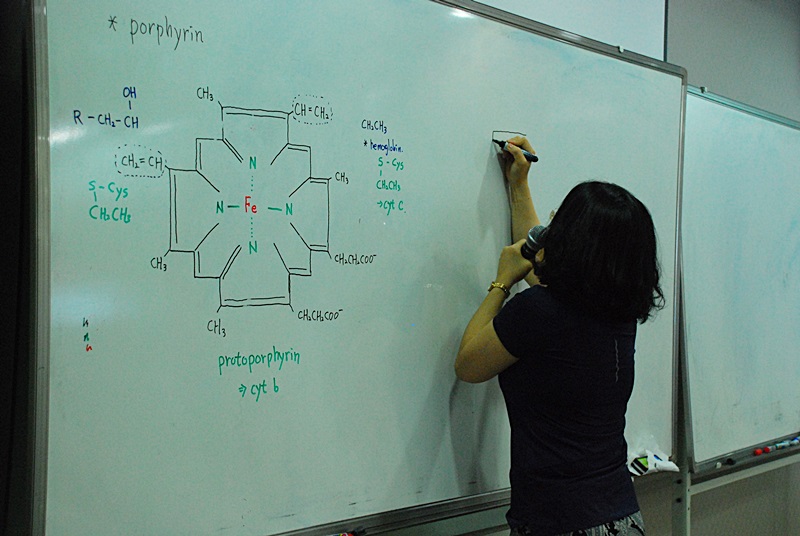 * porphyrin
OH
R - CH₂ - CH
CH₃
CH = CH₂
CH₂ = CH
S - Cys
CH₂CH₃
N
N - Fe - N
N
CH₃
CH₃
CH₂CH₂COO⁻
CH₃
CH₂CH₂COO⁻
protoporphyrin
⇒ cyt b
CH₂CH₃
* hemoglobin.
S - Cys
CH₂CH₃
→ cyt c